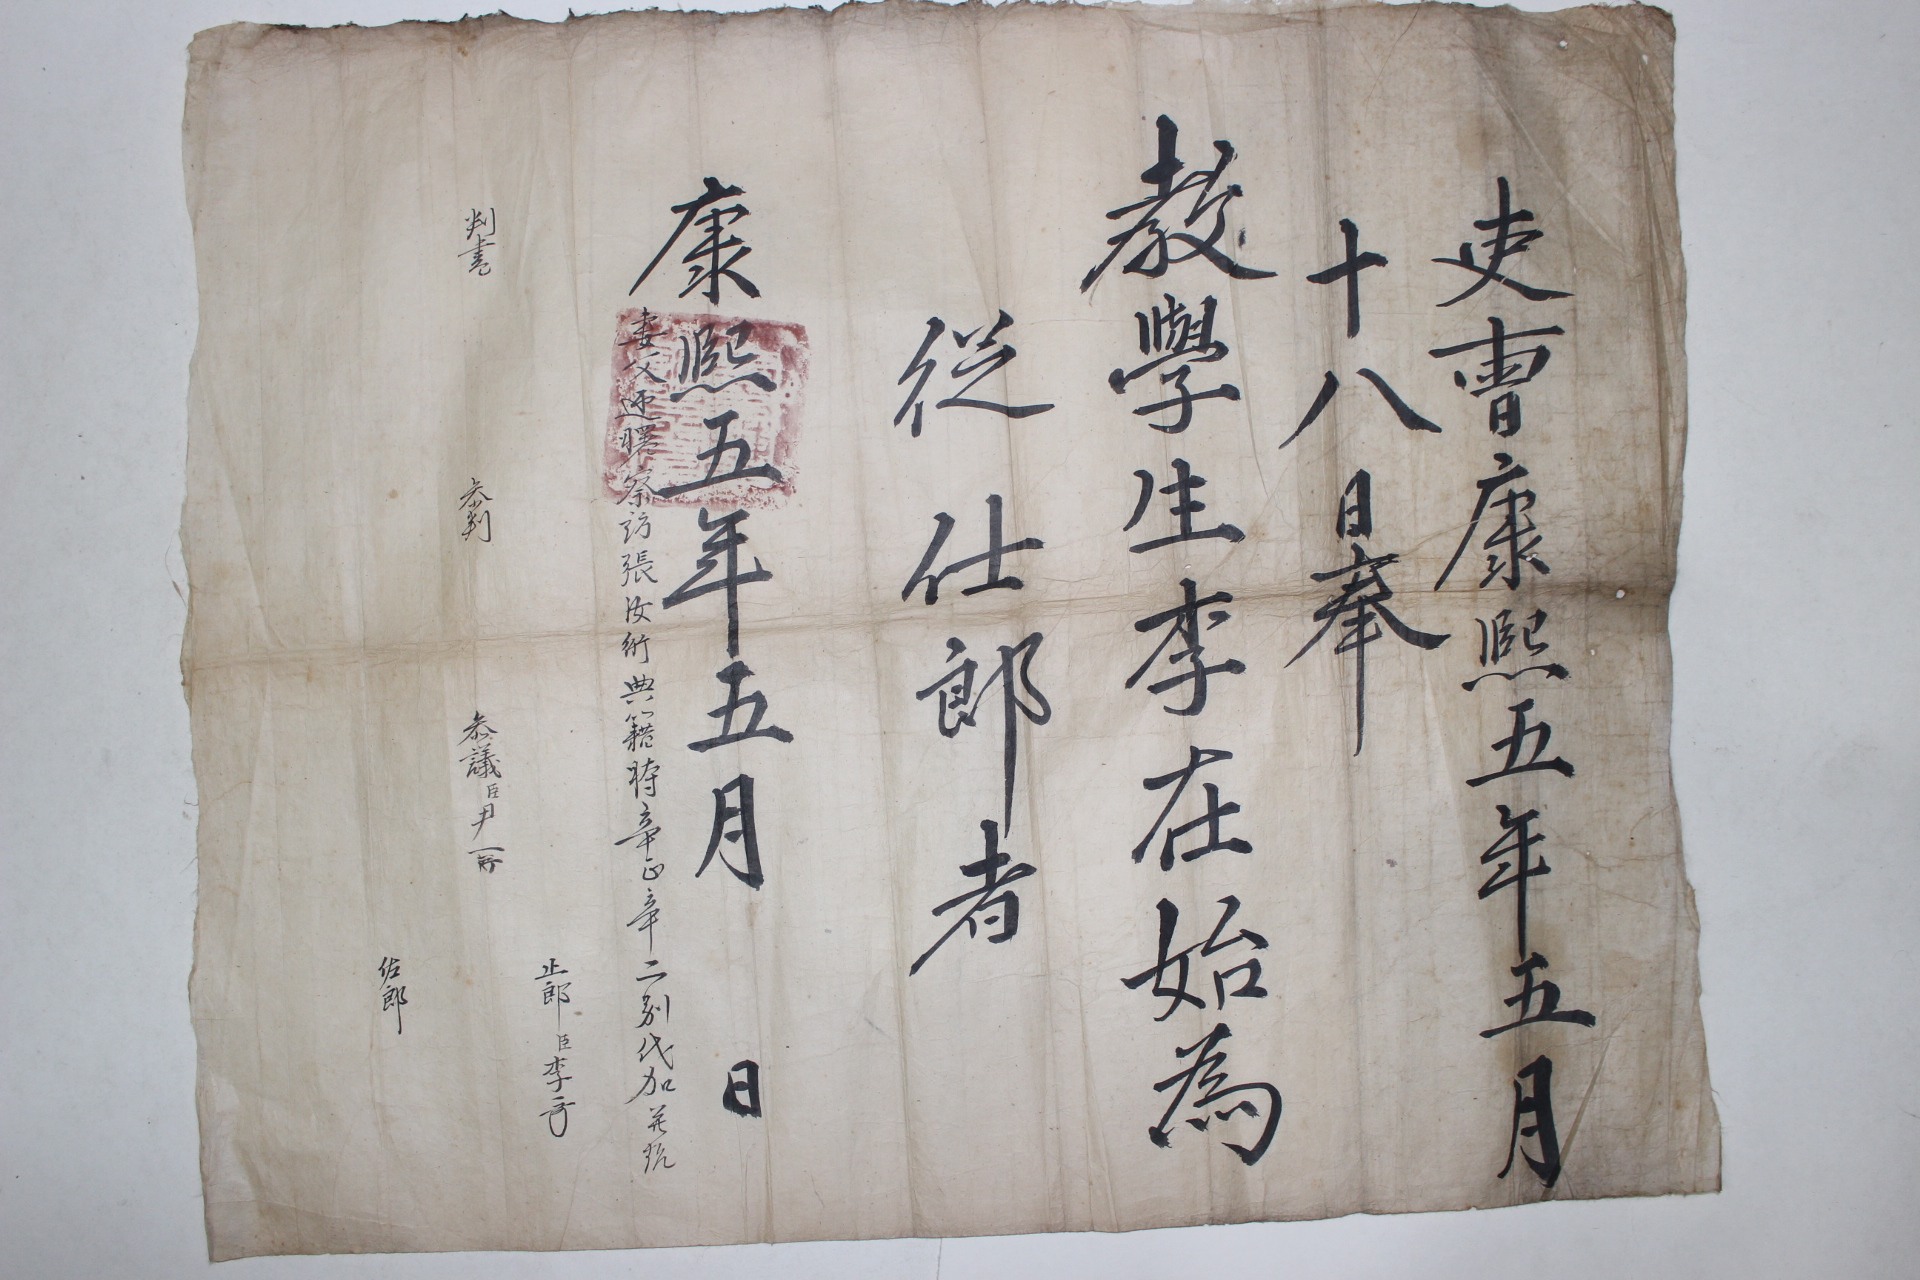 吏曹康熙五年五月
十八日奉
教學生李在始為
從仕郎者
康熙五年五月 日
妻父迎曙察訪張汝衎典籍時 二 別代加
正郎臣李
判書 參判 參議臣尹
佐郎